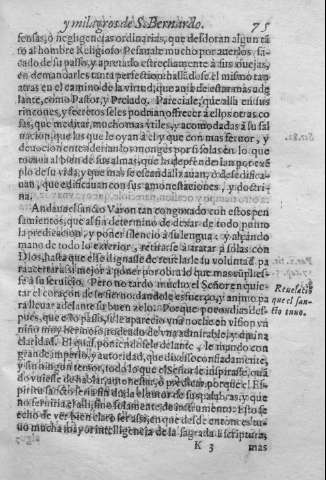 y milagros de S. Bernardo. 75
fensas, ò negligencias ordinarias, que desdoran algun tã
to al hombre Religioso Pesauale mucho por auerlos sa-
cado de su passo, y apretado estrechamente à sus ouejas,
en demandarles tanta perfection hallãdose el mismo tan
atras en el camino de la virtud, que auia de estar mas ade
lante, como Pastor, y Prelado. Pareciale, que allà en sus
rincones, y secretos se les podrian offrecer à ellos otras co
sas, que meditar, mucho mas vtiles, y acomodadas à su sal
uacion, que las que le oyan à el y que con mas feruor, y
deuocion entenderian los monges por si solas en lo que
tocaua al bien de sus almas, que las deprendeian por exẽ
plo de su vida, y que mas se escandalizauan, ò desedifica-
uan, que edificauan con sus amonestaciones, y doctri-
na.
Andaua el sancto Varon tan congoxado con estos pen
samientos, que al fin determinò de dexar de todo punto
la predicacion, y poner silencio à su lengua: y alçando
mano de todo lo exterior, retirarse à tratar à solas con
Dios, hasta que el se dignasse de reuelarle su voluntad pa
ra acertar assi mejor à poner por obra lo que mas cumplies-
se à su seruicio. Pero no tardò mucho el Señor en quie-
tar el coraçon de su sieruo, dandole esfuerço, y animo pa
ra lleuar adelante su buen zelo. Porque pocos dias des-
pues, que esto passò, se le apareciò vna noche en vision vn
niño muy hermoso, rodeado de vna admirable, y diuina
claridad. El qual poniendosele delante, le mandò con
grande imperio, y autoridad, que dixesse confiadamente,
y sin ningun temor, todo lo que el Señor le inspirasse, quã
do vuiesse de hablar, amonestar, ò predicar porque el Es-
piritu sancto seria sin duda el autor de sus palabras, y que
no seruiria el alli, sino solamente de instrumento. Esto se
echò de ver bien claro ser assi, en que desde entonces tu-
uo mucha mayor intelligencia de la sagrada Escriptura,
Reuelació
que el san-
cto tuuo.
K 3 mas